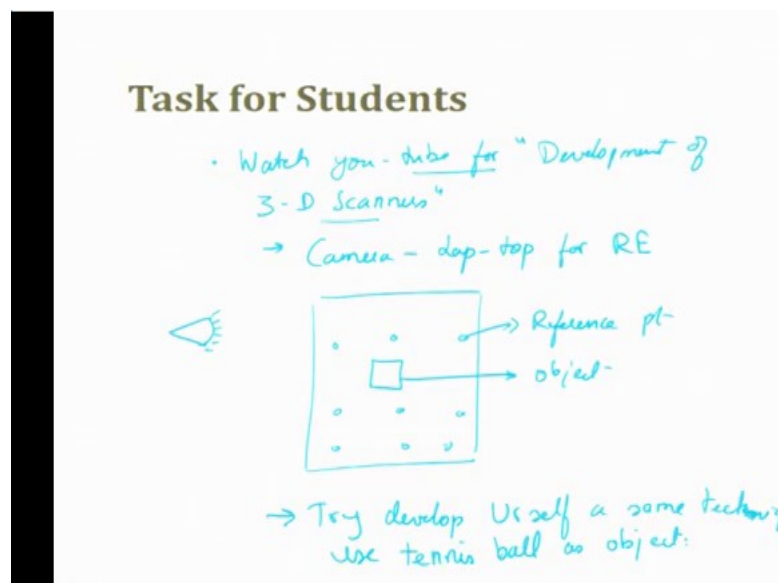 Task for Students
· Watch you-tube for "Development of
3-D Scanners"
→ Camera - Lap-top for RE
→ Reference pt-
→ object-
→ Try develop Urself a some
use tennis ball as object.